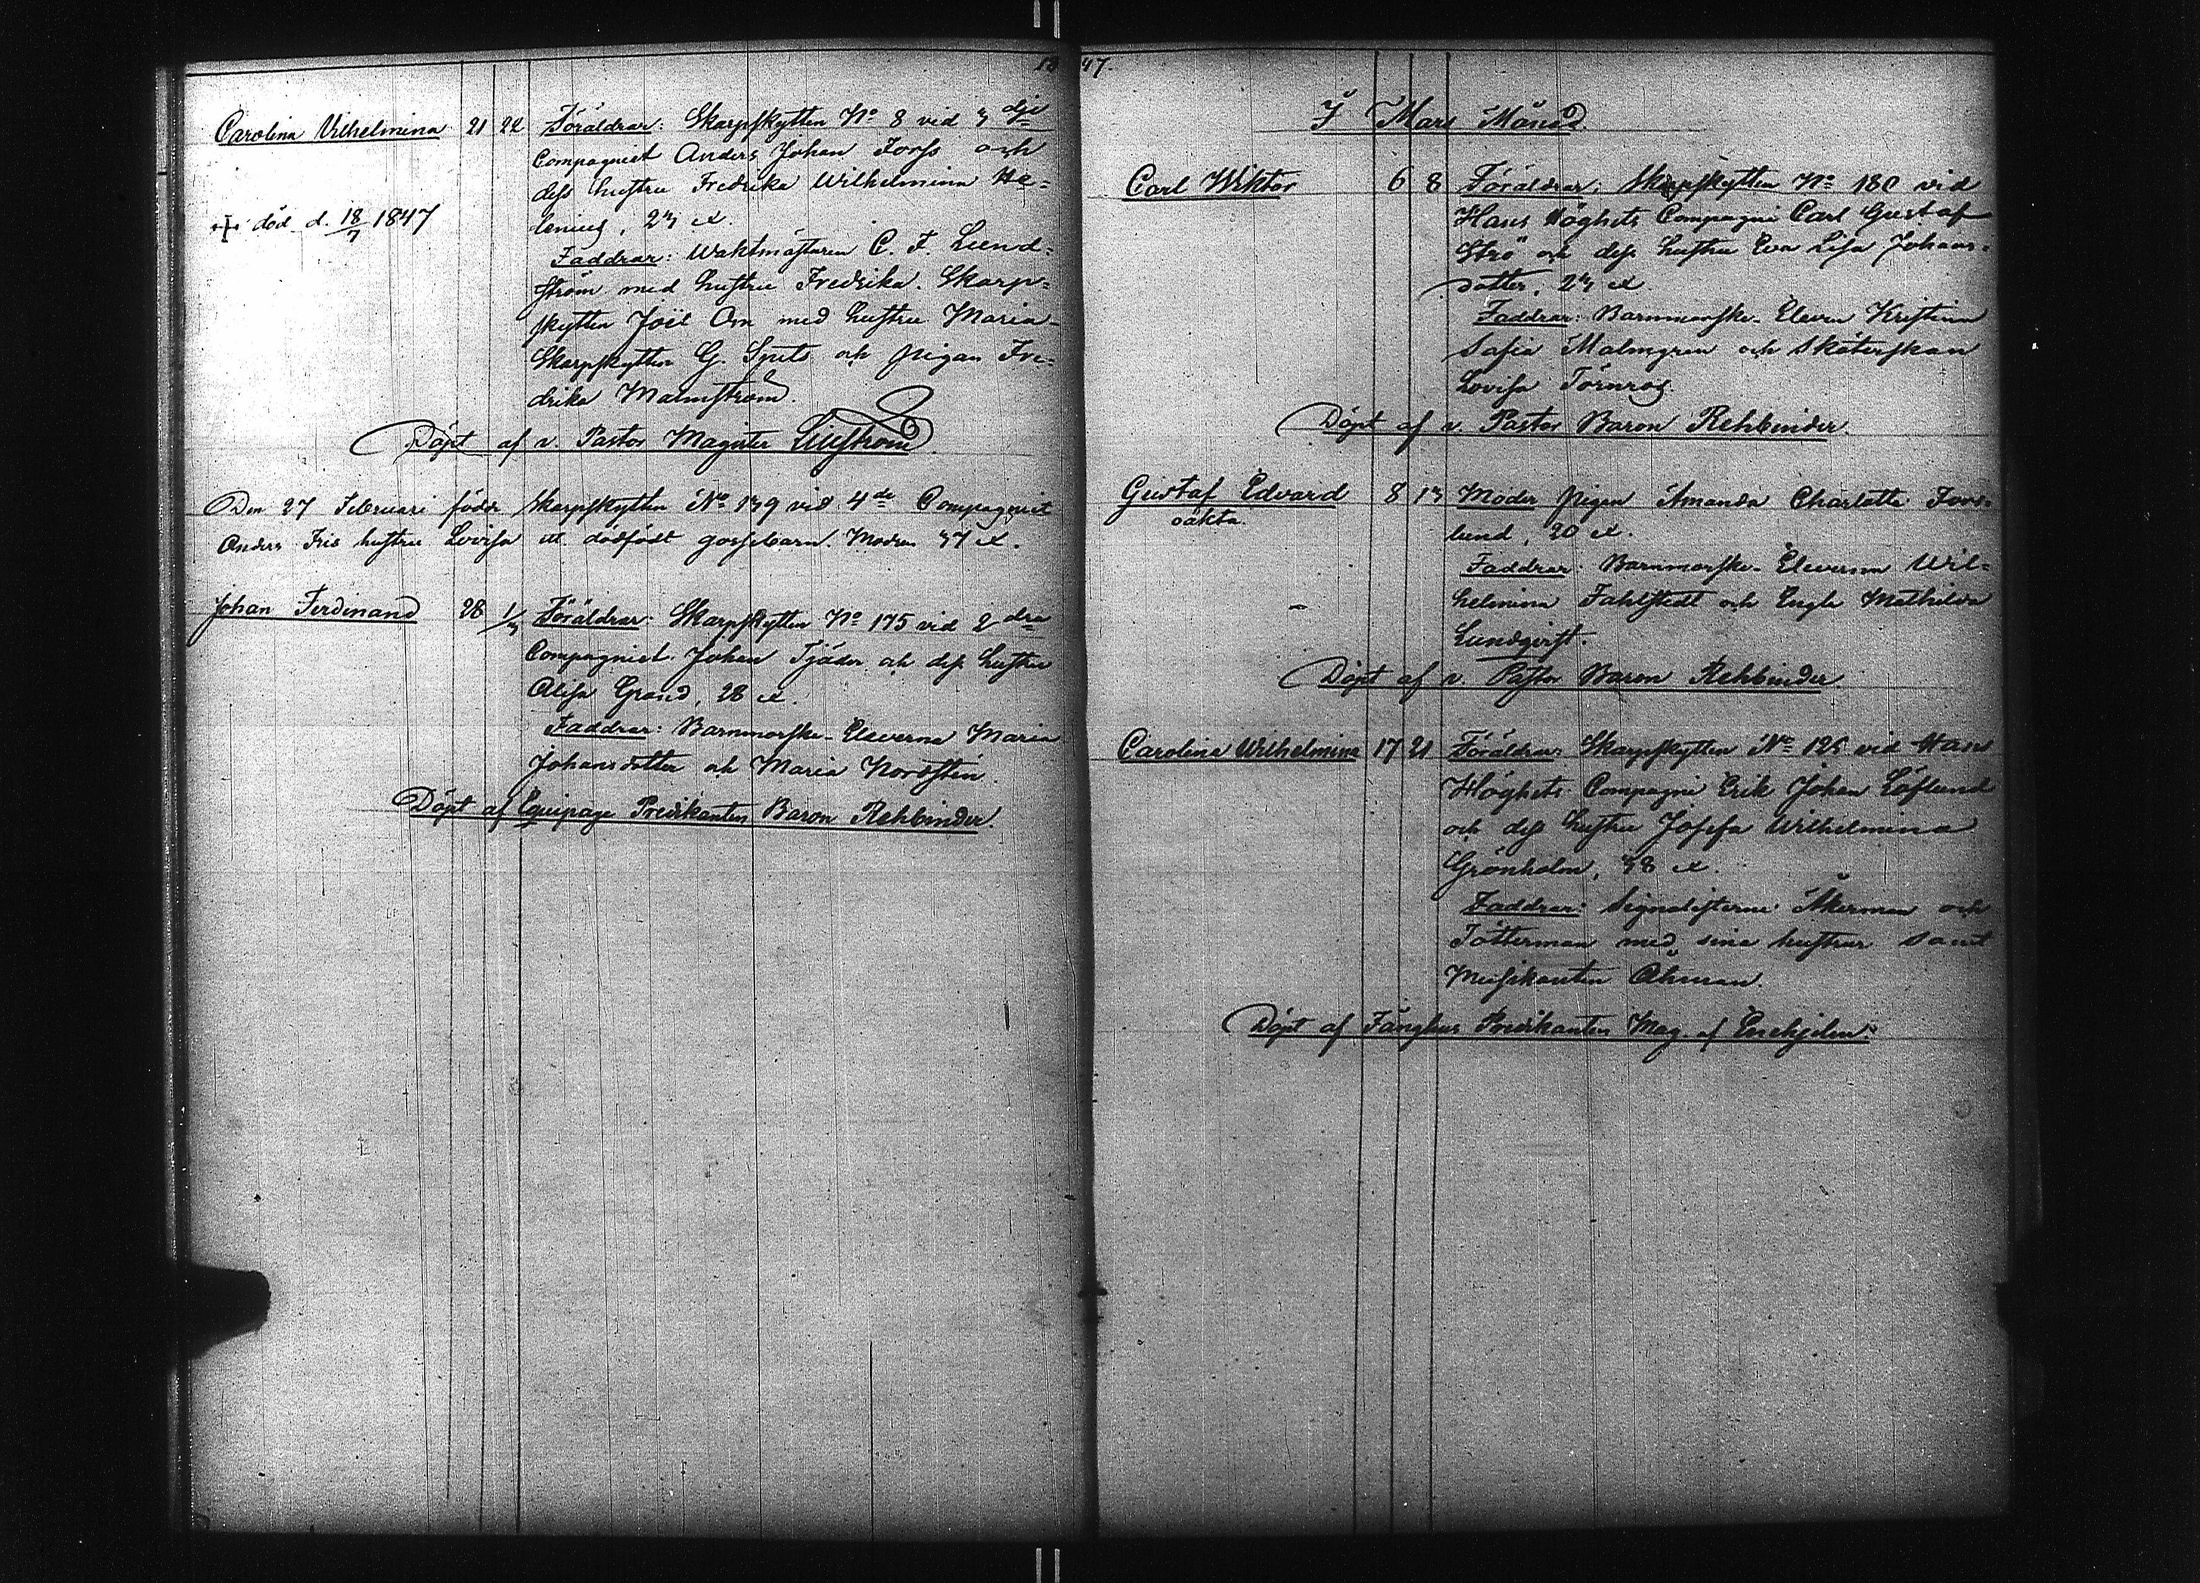 1847.
Carolina Vilhelmina 21 22 Föräldrar: Skarpskytten No 8 vid 3 dje
Compagniet Anders Johan Forss och
dess hustru Fredrika Wilhelmina He-
lenius, 23 år.
+ död d. 18/7 1847
Faddrar: Waktmästaren C. F. Lund-
ström med hustru Fredrika. Skarp-
skytten Joël Orn med hustru Maria
Skarpskytten G. Spets och pigan Fre-
drika Malmström.
Döpt af v. Pastor Magister
Den 27 Februari födde Skarpskytten No 139 vid 4de Compagniet
Anders Fris hustru Lovisa ett dödfödt gossebarn. Modren 37 år.
Johan Ferdinand 28 1/3 Föräldrar: Skarpskytten No 175 vid 2 dra
Compagniet Johan Tjäder och dess hustru
Alisa Grand, 28 år.
Faddrar: Barnmorske-Eleverna Maria
Johansdotter och Maria Nordstén.
Döpt af Equipage Predikanten Baron Rehbinder.
I Mars Månad.
Carl Wiktor 6 8 Föräldrar: Skarpskytten No 180 vid
Hans Höghets Compagni Carl Gustaf
Strö och dess hustru Eva Lisa Johans-
dotter, 23 år
Faddrar: Barnmorske-Eleven Kristina
Sofia Malmgren och Sköterskan
Lovisa Törnros.
Döpt af v. Pastor Baron Rehbinder.
Gustaf Edvard 8 13 Moder pigan Amanda Charlotta Fors-
oäkta.
lund, 20 år.
Faddrar: Barnmorske-Eleverna Wil-
helmina Fahlstedt och Engla Mathilda
Lundqvist.
Döpt af v. Pastor Baron Rehbinder.
Carolina Wilhelmina 17 21 Föräldrar: Skarpskytten No 125 vid Hans
Höghets Compagni Erik Johan Löflund
och dess hustru Josefa Wilhelmina
Grönholm, 38 år.
Faddrar: Signalisterne Åkerman och
Tötterman med sina hustrur samt
Musikanten Öhman.
Döpt af Fånghus Predikanten Mag. af Enehjelm.